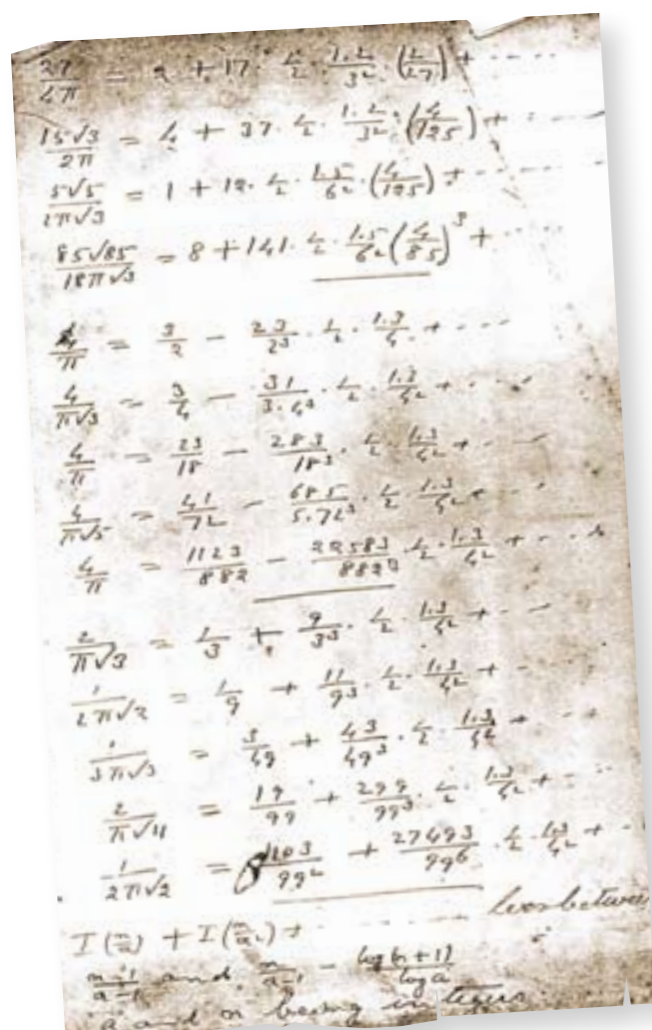 27/4π = 2 + 17 · 1/2 · 1.2/3² · (2/27) + ----
15√3/2π = 4 + 37 · 1/2 · 1.2/3² · (4/125) + ----
5√5/2π√3 = 1 + 12 · 1/2 · 1.5/6² · (4/125) + ----
85√85/18π√3 = 8 + 141 · 1/2 · 1.5/6² (4/85)³ + ----
4/π = 3/2 − 23/2³ · 1/2 · 1.3/4² + ----
4/π√3 = 3/4 − 31/3.4³ · 1/2 · 1.3/4² + ----
4/π = 23/18 − 283/18³ · 1/2 · 1.3/4² + ----
4/π√5 = 41/72 − 685/5.72³ · 1/2 · 1.3/4² + ----
4/π = 1123/882 − 22583/882³ · 1/2 · 1.3/4² + ----
2/π√3 = 1/3 + 9/3³ · 1/2 · 1.3/4² + ----
1/2π√2 = 1/9 + 11/9³ · 1/2 · 1.3/4² + ----
1/3π√3 = 3/49 + 43/49³ · 1/2 · 1.3/4² + ----
2/π√11 = 19/99 + 299/99³ · 1/2 · 1.3/4² + ----
1/2π√2 = 1103/99² + 27493/99⁶ · 1/2 · 1.3/4² + ----
I(n/a) + I(n/a²) + ---- lies between
n-1/a-1 and n/a-1 − log(n+1)/log a
a and n being integers